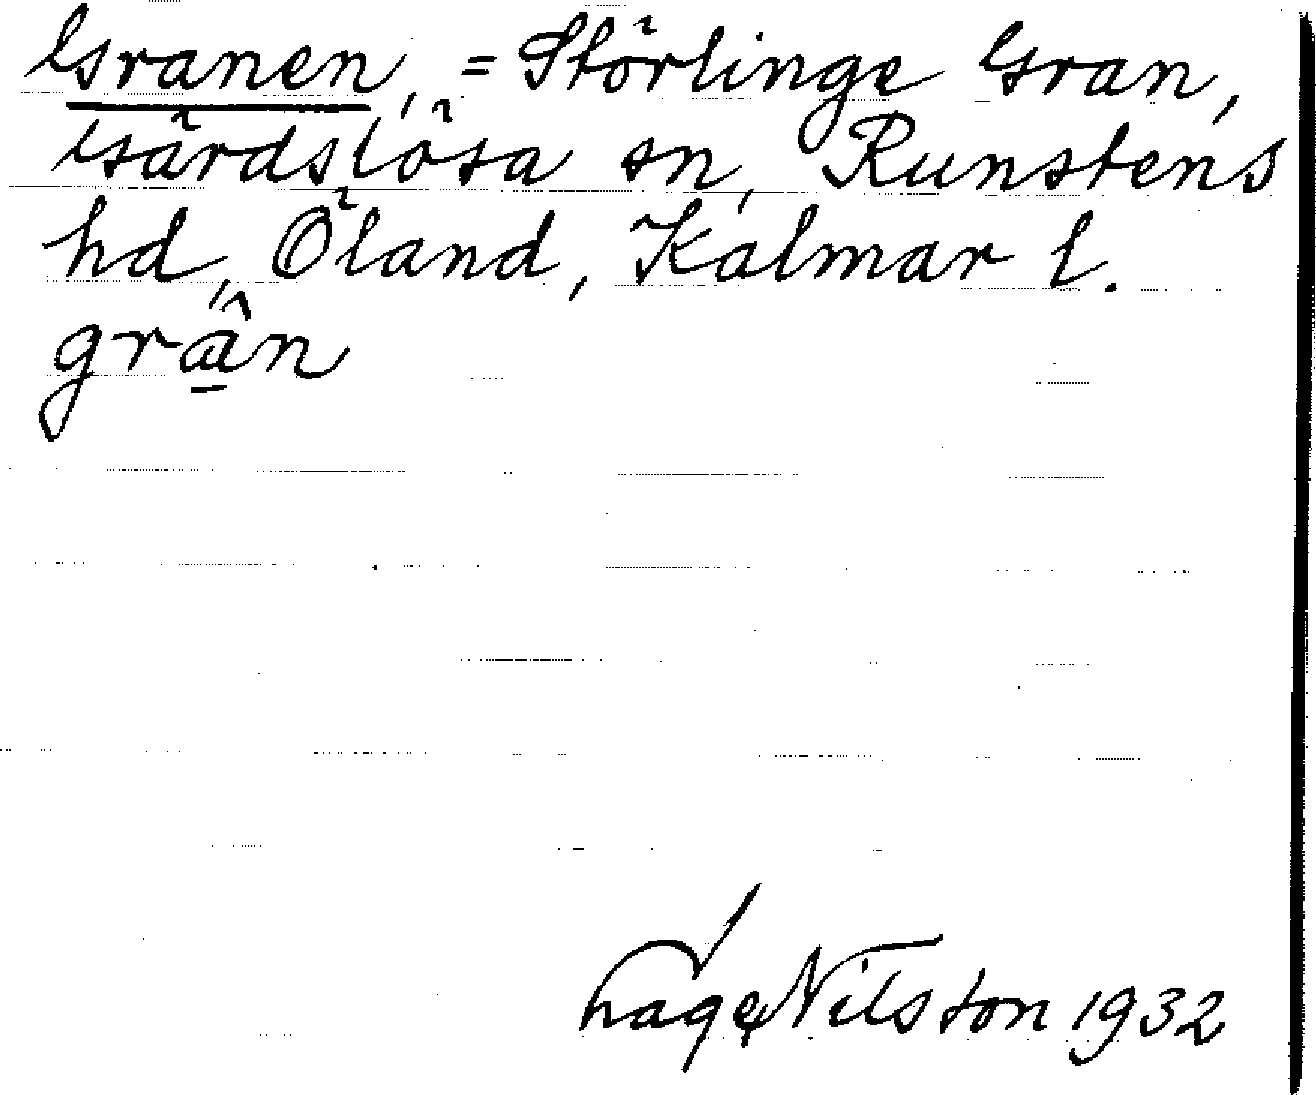 Granen, = Störlinge Gran,
Gärdslösa sn, Runstens
hd, Öland, Kalmar l.
grâ̱n
Lage Nilsson 1932